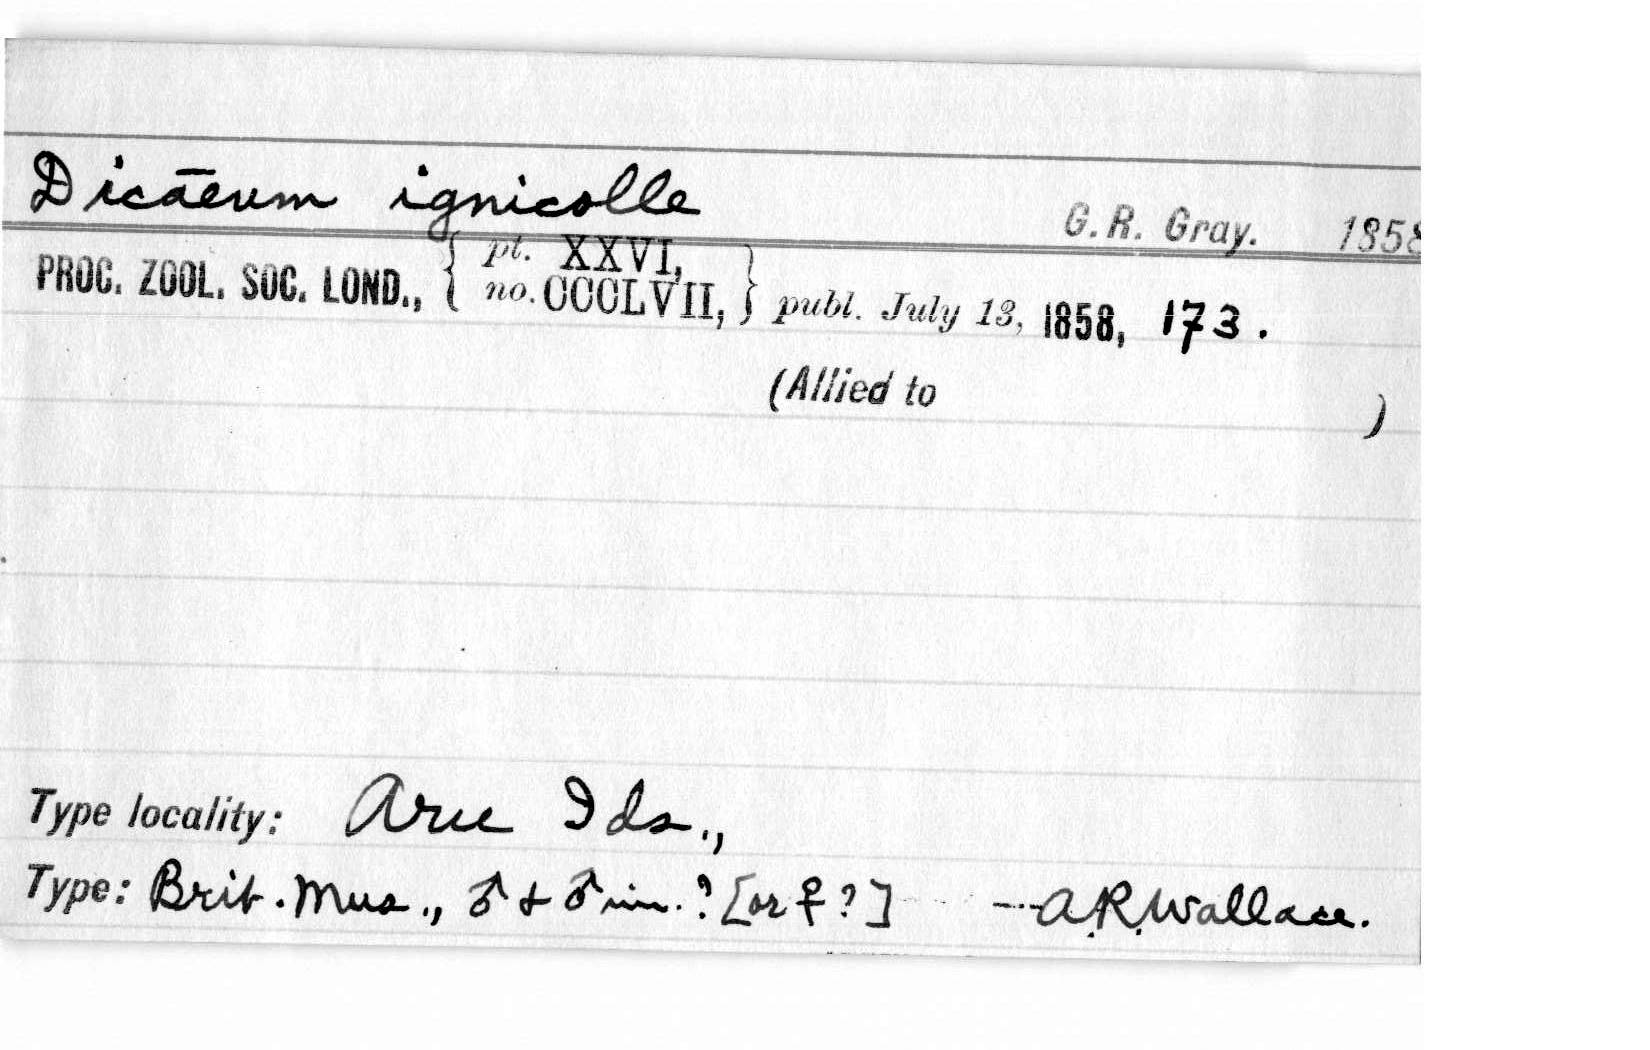 Dicāeum ignicolle G. R. Gray. 1858
pt. XXVI,
PROC. ZOOL. SOC. LOND., { no. CCCLVII, } publ. July 13, 1858, 173.
(Allied to )
Type locality: Aru Ids.,
Type: Brit. Mus., ♂ + ♂ im. ? [or ♀ ?] --- A.R. Wallace.